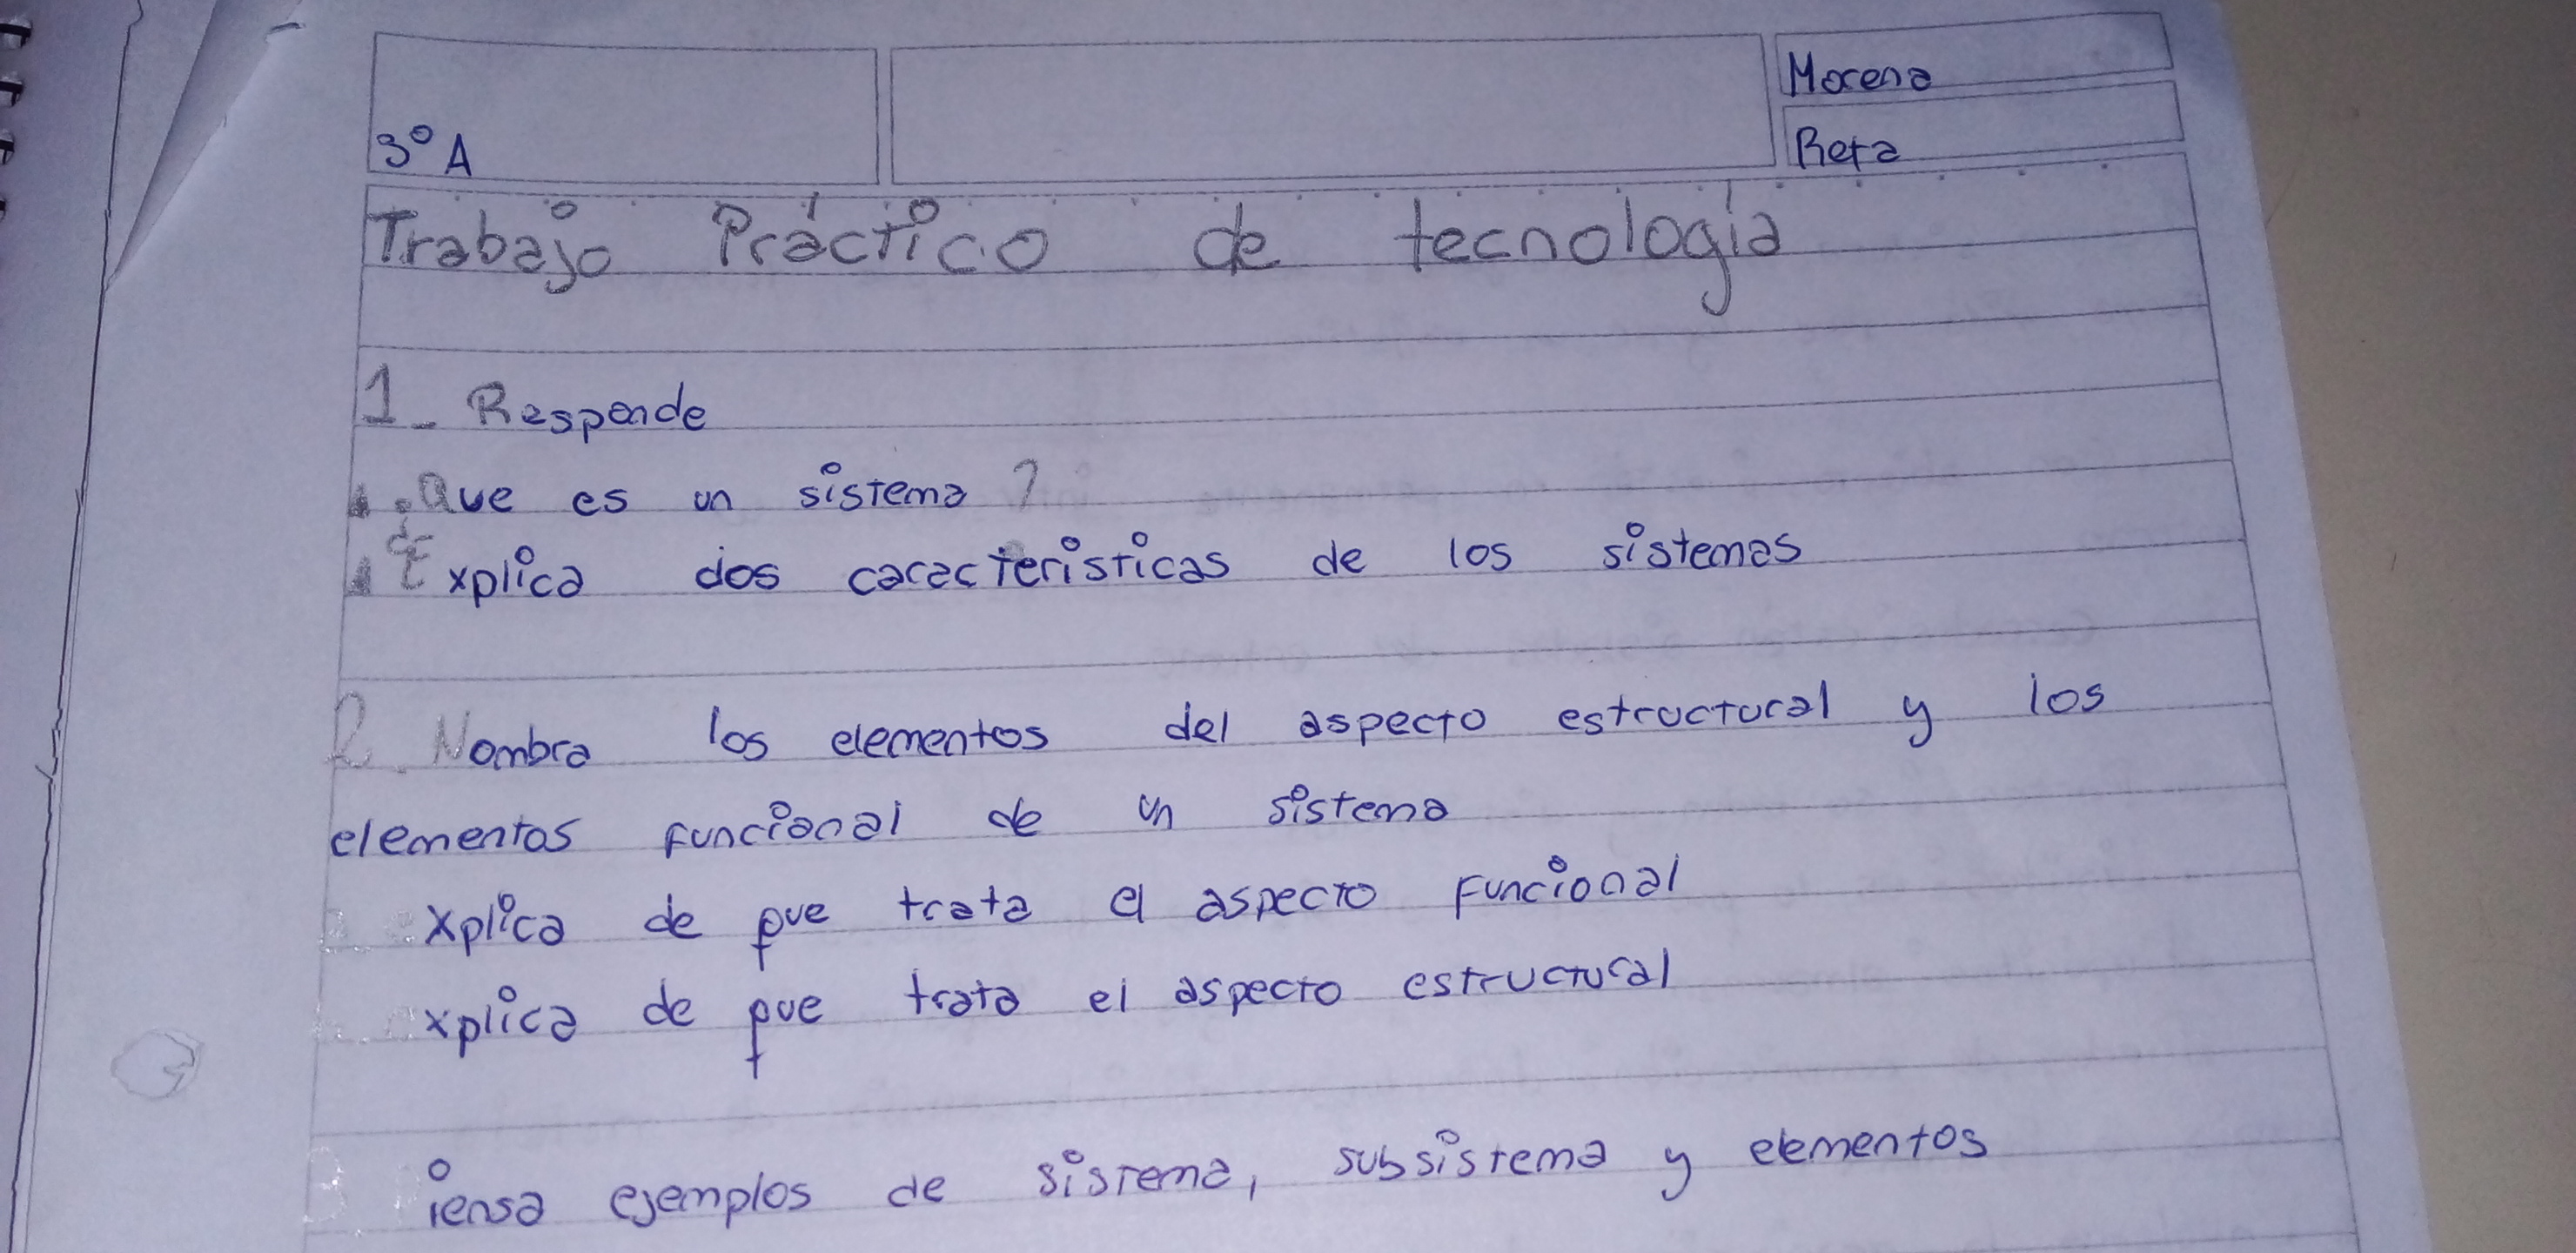 3° A
Morena
Reta
Trabajo Práctico de tecnologia
1_ Responde
.Que es un sistema ?
Explica dos caracteristicas de los sistemas
2. Nombra los elementos del aspecto estructural y los
elementos funcional de un sistema
xplica de que trata el aspecto funcional
xplica de que trata el aspecto estructural
iensa ejemplos de sistema, subsistema y elementos